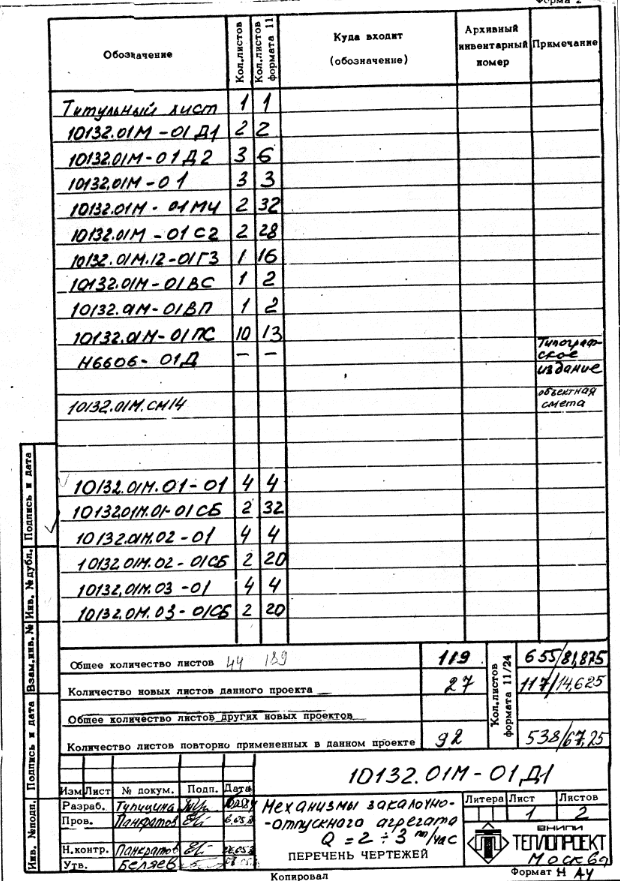 Форма 2
Обозначение Кол.листов Кол.листов формата 11 Куда входит (обозначение) Архивный инвентарный номер Примечание
Титульный лист 1 1
10132.01М-01Д1 2 2
10132.01М-01Д2 3 6
10132.01М-01 3 3
10132.01М-01МЧ 2 32
10132.01М-01С2 2 28
10132.01М.12-01Г3 1 16
10132.01М-01ВС 1 2
10132.01М-01ВП 1 2
10132.01М-01ПС 10 13
Н6606-01Д - - Типографское издание
10132.01М.СМ14 объектная смета
10132.01М.01-01 4 4
10132.01М.01-01СБ 2 32
10132.01М.02-01 4 4
10132.01М.02-01СБ 2 20
10132.01М.03-01 4 4
10132.01М.03-01СБ 2 20
Общее количество листов 44 189 119 655/81,875
Количество новых листов данного проекта 27 117/14,625
Общее количество листов других новых проектов
Количество листов повторно примененных в данном проекте 92 538/67,25
Кол.листов формата 11/24
Подпись и дата
Инв. №дубл.
Взам.инв. №
Подпись и дата
Инв. №подл.
10132.01М-01Д1
Изм Лист № докум. Подп. Дата
Разраб. Тупицина
Пров. Панкратов
Н.контр. Панкратов
Утв. Беляев
Механизмы закалочно-
-отпускного агрегата
Q = 2 ÷ 3 т/час
ПЕРЕЧЕНЬ ЧЕРТЕЖЕЙ
Литера Лист Листов
1 2
ВНИПИ
ТЕПЛОПРОЕКТ
Москва
Копировал Формат А4